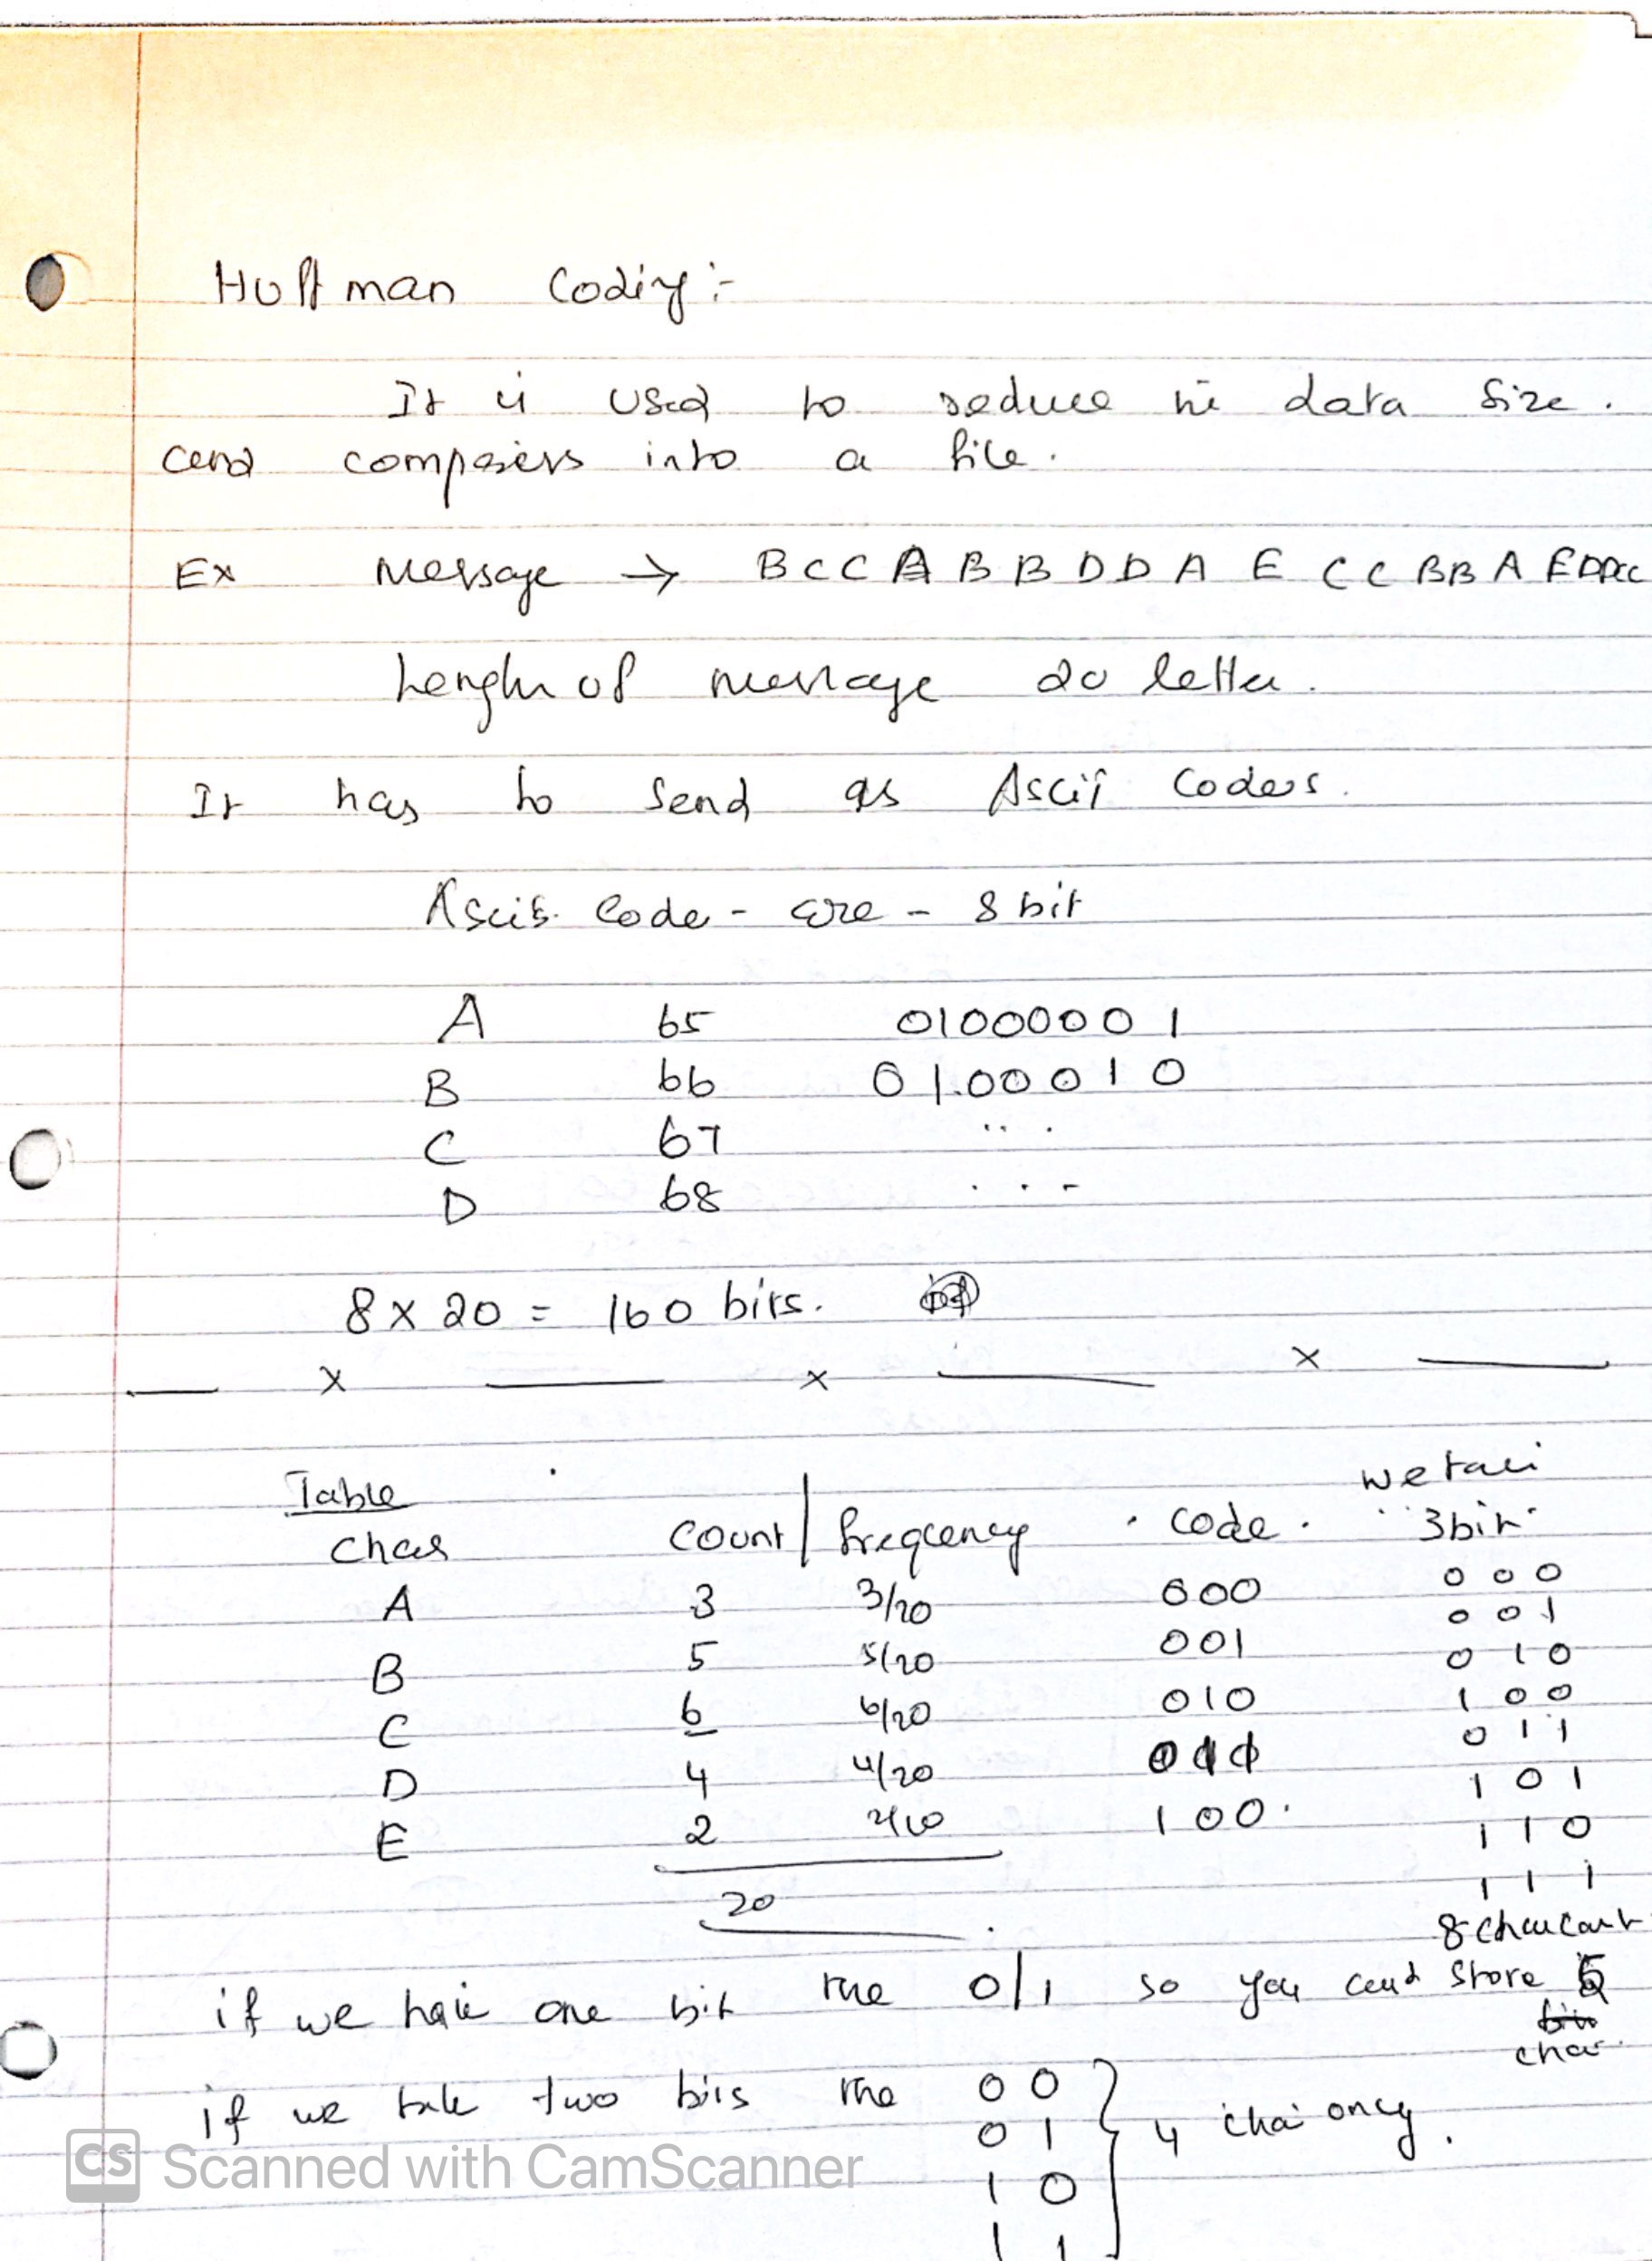 Huffman Coding :-
It is used to reduce the data size.
and compress into a file.
Ex Message → B C C A B B D D A E C C B B A E D D C C
Length of message 20 letter.
It has to send as Ascii Coders.
Ascii Code - are - 8 bit
A 65 01000001
B 66 01000010
C 67 ...
D 68 ...
8 x 20 = 160 bits.
x x x
Table
we take
Char Count | frequency . Code . 3 bit.
A 3 3/20 000 000
B 5 5/20 001 001
C 6 6/20 010 010
D 4 4/20 011 100
E 2 2/20 100. 011
101
110
111
20
8 char
if we have one bit the 0/1 so you store
char.
if we take two bits the 00
01 4 char only.
10
11
CS Scanned with CamScanner